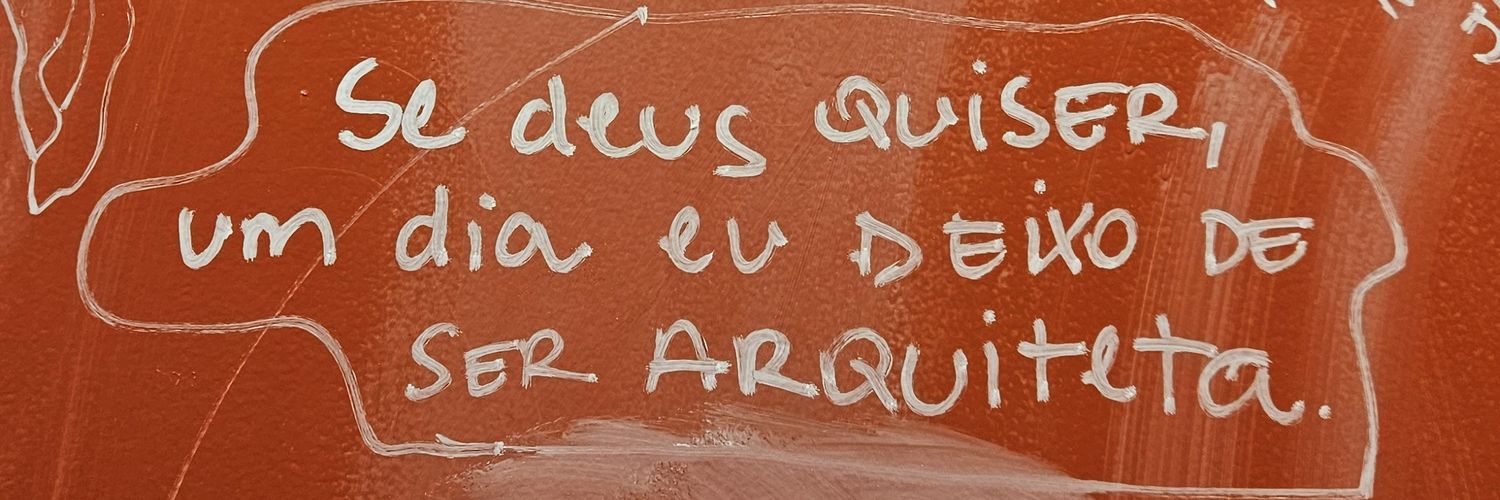 Se deus QUiSER,
um dia eu DEiXO DE
SER ARQUiteta.